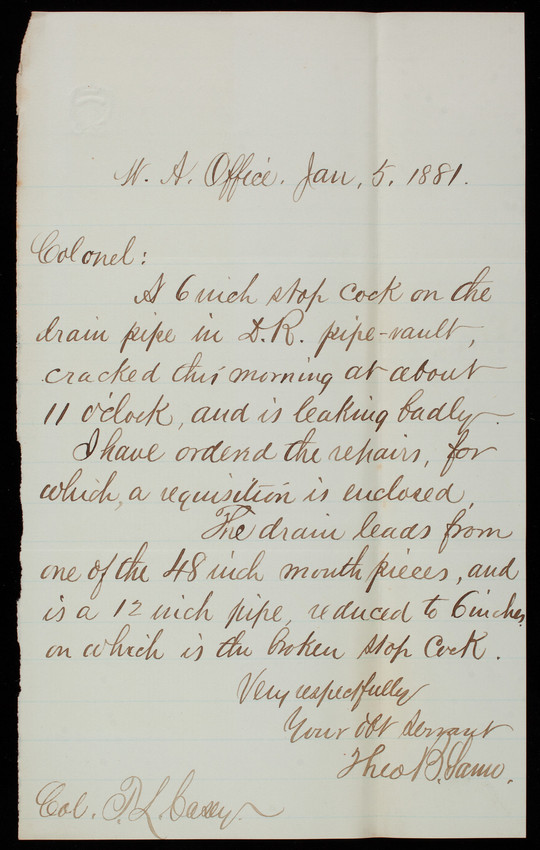 W. A. Office. Jan. 5. 1881.
Colonel:
A 6 inch stop cock on the
drain pipe in D.R. pipe-vault,
cracked this morning at about
11 o'clock, and is leaking badly.
I have ordered the repairs, for
which, a requisition is enclosed,
The drain leads from
one of the 48 inch mouth pieces, and
is a 12 inch pipe, reduced to 6 inches
on which is the broken stop cock.
Very respectfully
Your obt servant
Theo B. Samo.
Col. T. L. Casey